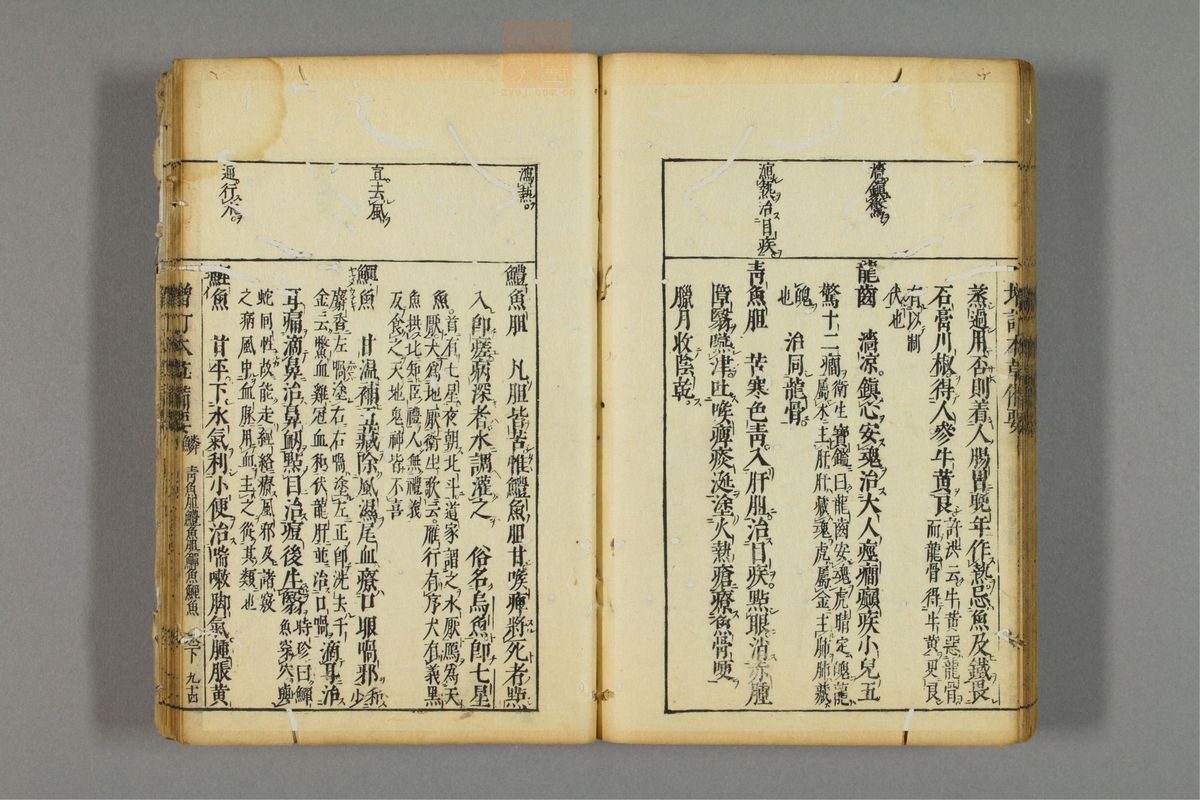 濇鎮驚
瀉熱治目疾
蒸過用否則着人腸胃晚年作熱忌魚及鐵畏
石膏川椒得人參牛黃良許洪云牛黃惡龍骨而龍骨得牛黃更良
有以制伏也
龍齒 濇凉鎮心安魂治大人痙癇癲疾小兒五
驚十二癇衛生寶鑑曰龍齒安魂虎睛定魄龍屬木主肝肝藏魂虎屬金主肺肺藏
魄也 治同龍骨
青魚胆 苦寒色青入肝胆治目疾點眼消赤腫
障翳嚥津吐喉痺痰涎塗火熱瘡療魚骨哽
臘月收陰乾
瀉熱
宜去風
通行水
鱧魚胆 凡胆皆苦惟鱧魚胆甘喉痺將死者點
入即瘥病深者水調灌之 俗名烏魚即七星
魚首有七星夜朝北斗道家謂之水厭鴈爲天厭犬爲地厭衛生歌云鴈行有序犬有義黑
魚拱北知臣禮人無禮義反食之天地鬼神皆不喜
鱓魚 甘溫補五藏除風濕尾血療口眼喎邪和少
麝香左喎塗右右喎塗左正即洗去千金云鱉血雞冠血和伏龍肝並治口喎滴耳治
耳痛滴鼻治鼻衂點目治痘後生翳時珍曰鱓魚桀穴與
蛇同性故能走經絡療風邪及諸竅之病風中血脉用血主之從其類也
鯉魚 甘平下水氣利小便治喘嗽脚氣腫脹黃
增訂本草備要 鱗 青魚胆鱧魚胆鱓魚鯉魚 卷下 九十四
增訂本草備要